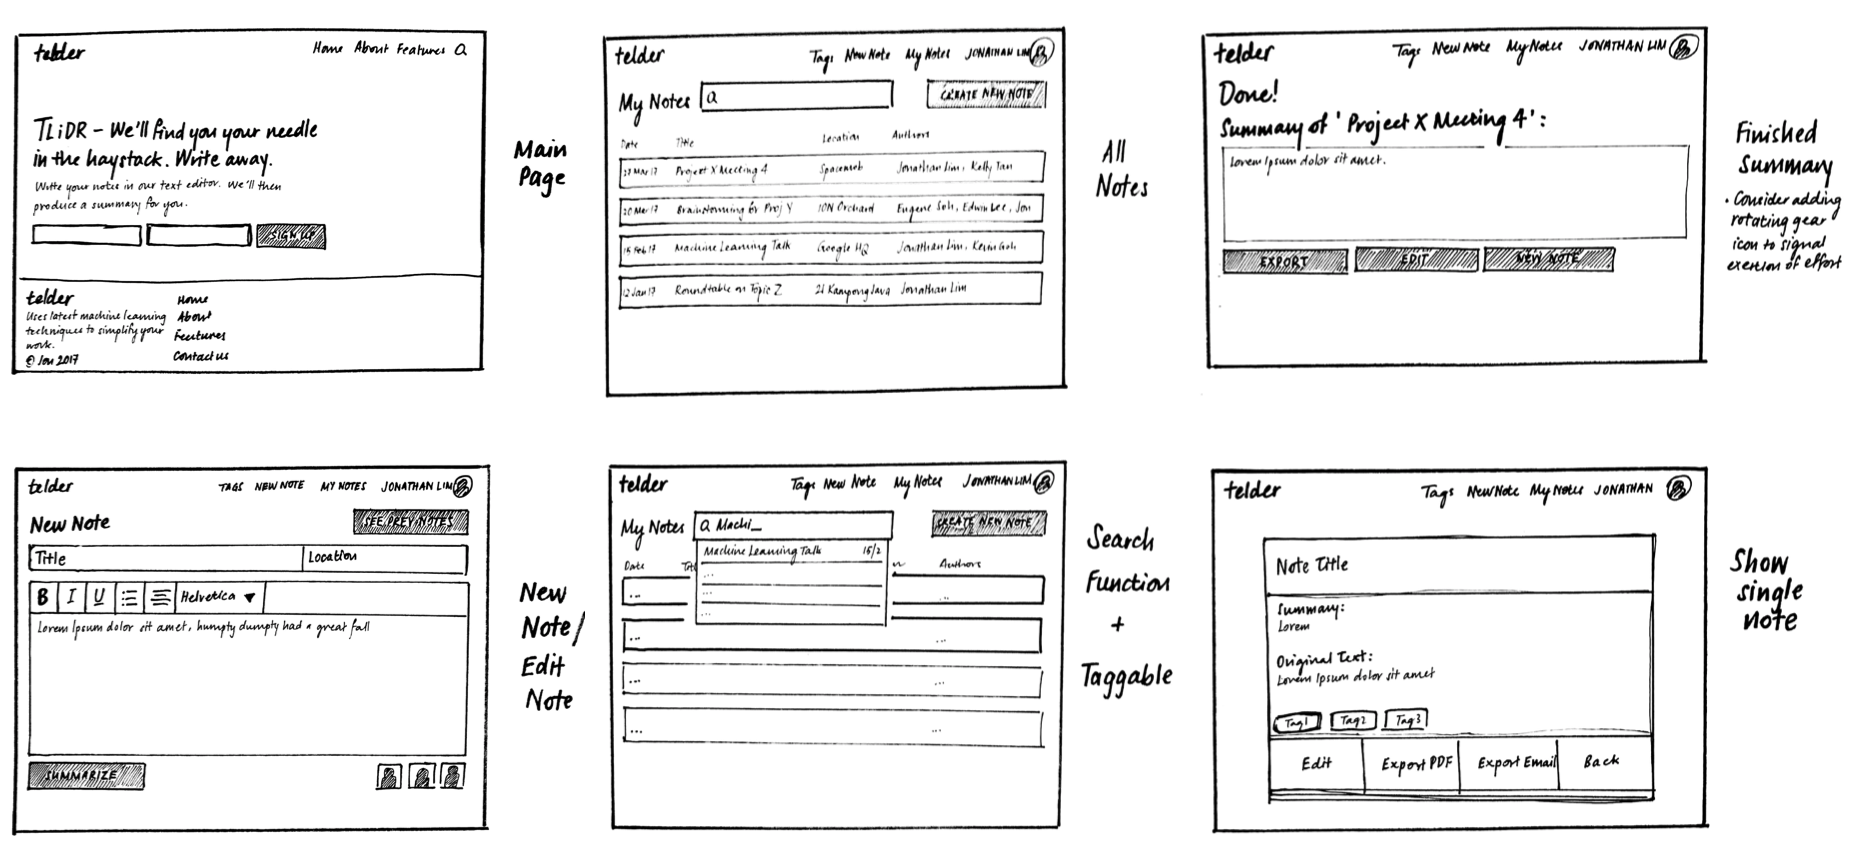 telder
Home About Features
TLiDR - We'll find you your needle
in the haystack. Write away.
Write your notes in our text editor. We'll then
produce a summary for you.
SIGN UP
telder
Uses latest machine learning
techniques to simplify your
work.
© Jon 2017
Home
About
Features
Contact us
Main
Page
telder
Tags New Note My Notes JONATHAN LIM
My Notes
CREATE NEW NOTE
Date Title Location Authors
27 Mar 17 Project X Meeting 4 Spacemob Jonathan Lim, Kelly Tan
20 Mar 17 Brainstorming for Proj Y ION Orchard Eugene Soh, Edwin Lee, Jon
15 Feb 17 Machine Learning Talk Google HQ Jonathan Lim, Kevin Goh
12 Jan 17 Roundtable on Topic Z 21 Kampong Java Jonathan Lim
All
Notes
telder
Tags New Note My Notes JONATHAN LIM
Done!
Summary of 'Project X Meeting 4':
Lorem Ipsum dolor sit amet.
EXPORT
EDIT
NEW NOTE
Finished
Summary
• Consider adding
rotating gear
icon to signal
exertion of effort
telder
TAGS NEW NOTE MY NOTES JONATHAN LIM
New Note
SEE PREV NOTES
Title
Location
B I U Helvetica
Lorem Ipsum dolor sit amet, humpty dumpty had a great fall
SUMMARIZE
New
Note/
Edit
Note
telder
Tags New Note My Notes JONATHAN LIM
My Notes
Machi_
CREATE NEW NOTE
Machine Learning Talk 15/2
...
...
...
Date Authors
... 
... ...
... ...
... ...
Search
Function
+
Taggable
telder
Tags New Note My Notes JONATHAN
Note Title
Summary:
Lorem
Original Text:
Lorem Ipsum dolor sit amet
Tag1 Tag2 Tag3
Edit
Export PDF
Export Email
Back
Show
single
note